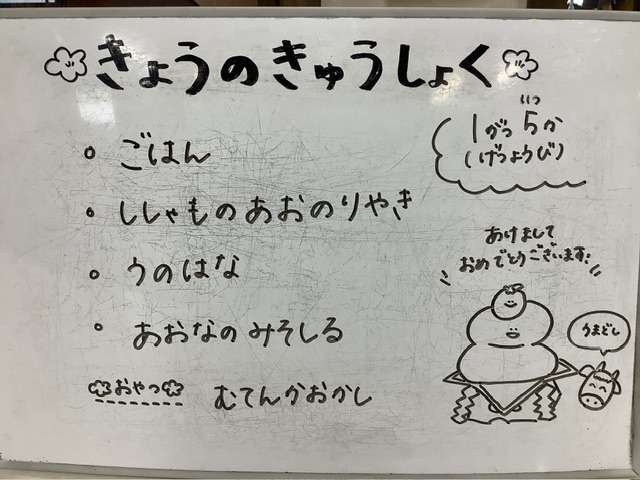 きょうのきゅうしょく
いつ
1がつ5か
(げつようび)
ごはん
ししゃものあおのりやき
うのはな
あおなのみそしる
おやつ むてんかおかし
あけまして
おめでとうございます!
うまどし